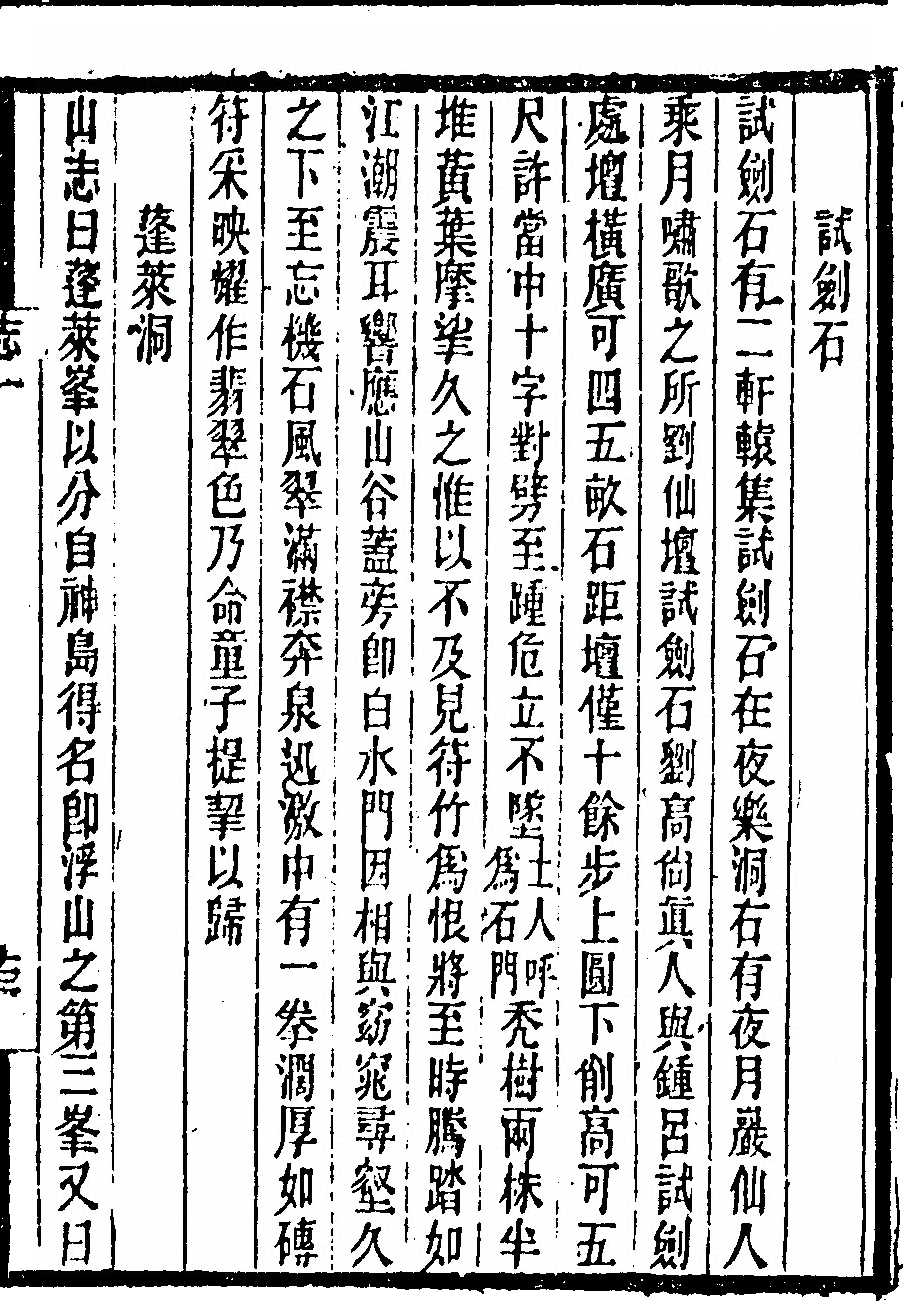 試劍石
試劍石有二軒轅集試劍石在夜樂洞右有夜月巖仙人
乘月嘯歌之所劉仙壇試劍石劉高尙眞人與鍾呂試劍
處壇橫廣可四五畝石距壇僅十餘步上圓下削高可五
尺許當中十字對劈至踵危立不墜士人呼爲石門禿樹兩株半
堆黃葉摩挲久之惟以不及見符竹爲恨將至時騰踏如
江潮震耳響應山谷蓋旁卽白水門因相與窈窕尋壑久
之下至忘機石風翠滿襟奔泉迅激中有一拳濶厚如磚
符采映耀作翡翠色乃命童子提挈以歸
蓬萊洞
山志曰蓬萊峯以分自神島得名卽浮山之第三峯又曰
志一